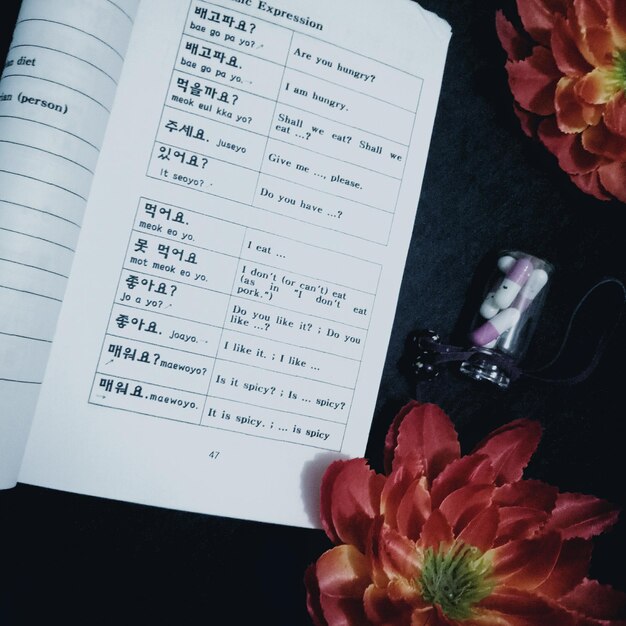 diet
(person)
Expression
배고파요?
bae go pa yo?
Are you hungry?
배고파요.
bae go pa yo.
I am hungry.
먹을까요?
meok eul kka yo?
Shall we eat? Shall we
eat ...?
주세요. juseyo
Give me ..., please.
있어요?
it seoyo?
Do you have ...?
먹어요.
meok eo yo.
I eat ...
못 먹어요
mot meok eo yo.
I don't (or can't) eat
(as in "I don't eat
pork.")
좋아요?
jo a yo?
Do you like it? ; Do you
like ...?
좋아요. joayo.
I like it. ; I like ...
매워요?maewoyo?
Is it spicy? ; Is ... spicy?
매워요.maewoyo.
It is spicy. ; ... is spicy
47